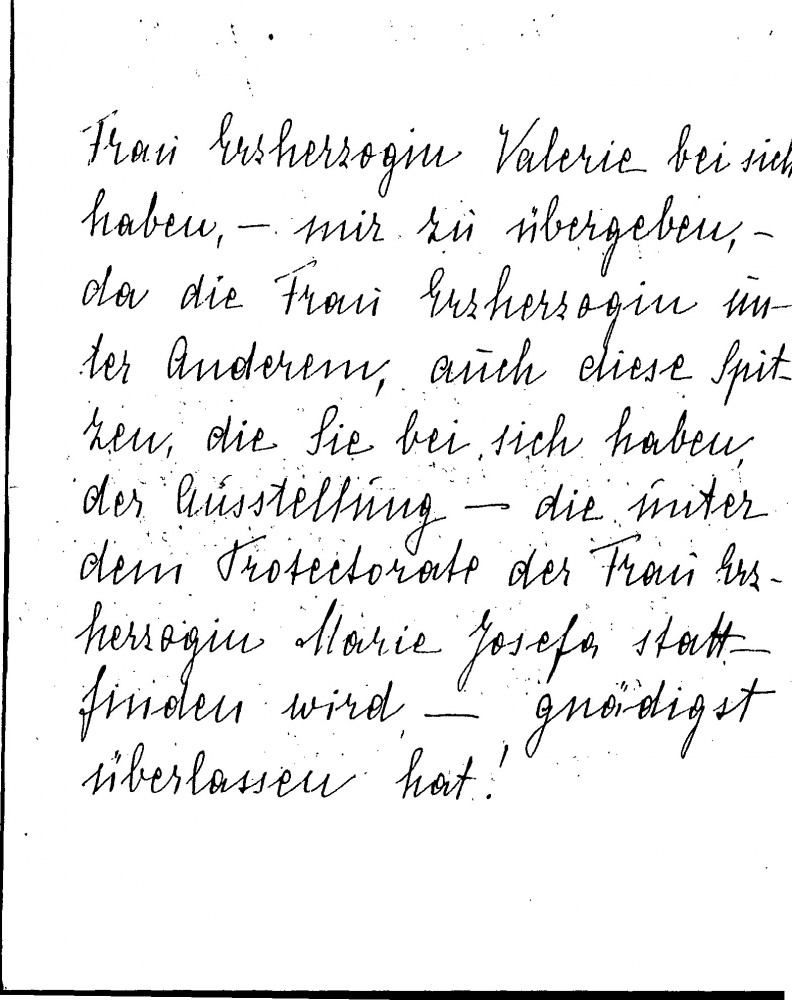 Frau Erzherzogin Valerie bei sich
haben, – mir zu übergeben, –
da die Frau Erzherzogin un-
ter Anderem, auch diese Spit-
zen, die Sie bei sich haben,
der Ausstellung – die unter
dem Protectorate der Frau Erz-
herzogin Marie Josefa statt-
finden wird – gnädigst
überlassen hat!